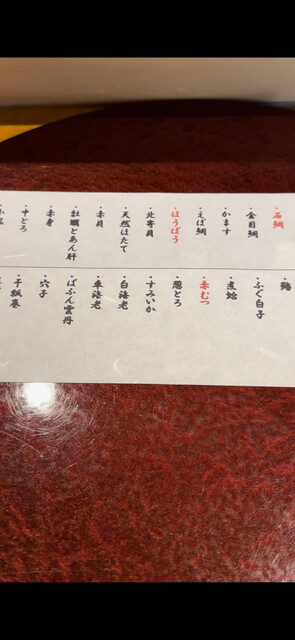 ・石鯛
・金目鯛
・かます
・えぼ鯛
・ほうぼう
・北寄貝
・天然ほたて
・赤貝
・牡蠣とあん肝
・赤身
・中とろ
・ふぐ白子
・煮蛤
・赤むつ
・葱とろ
・すみいか
・白海老
・車海老
・ばふん雲丹
・穴子
・干瓢巻